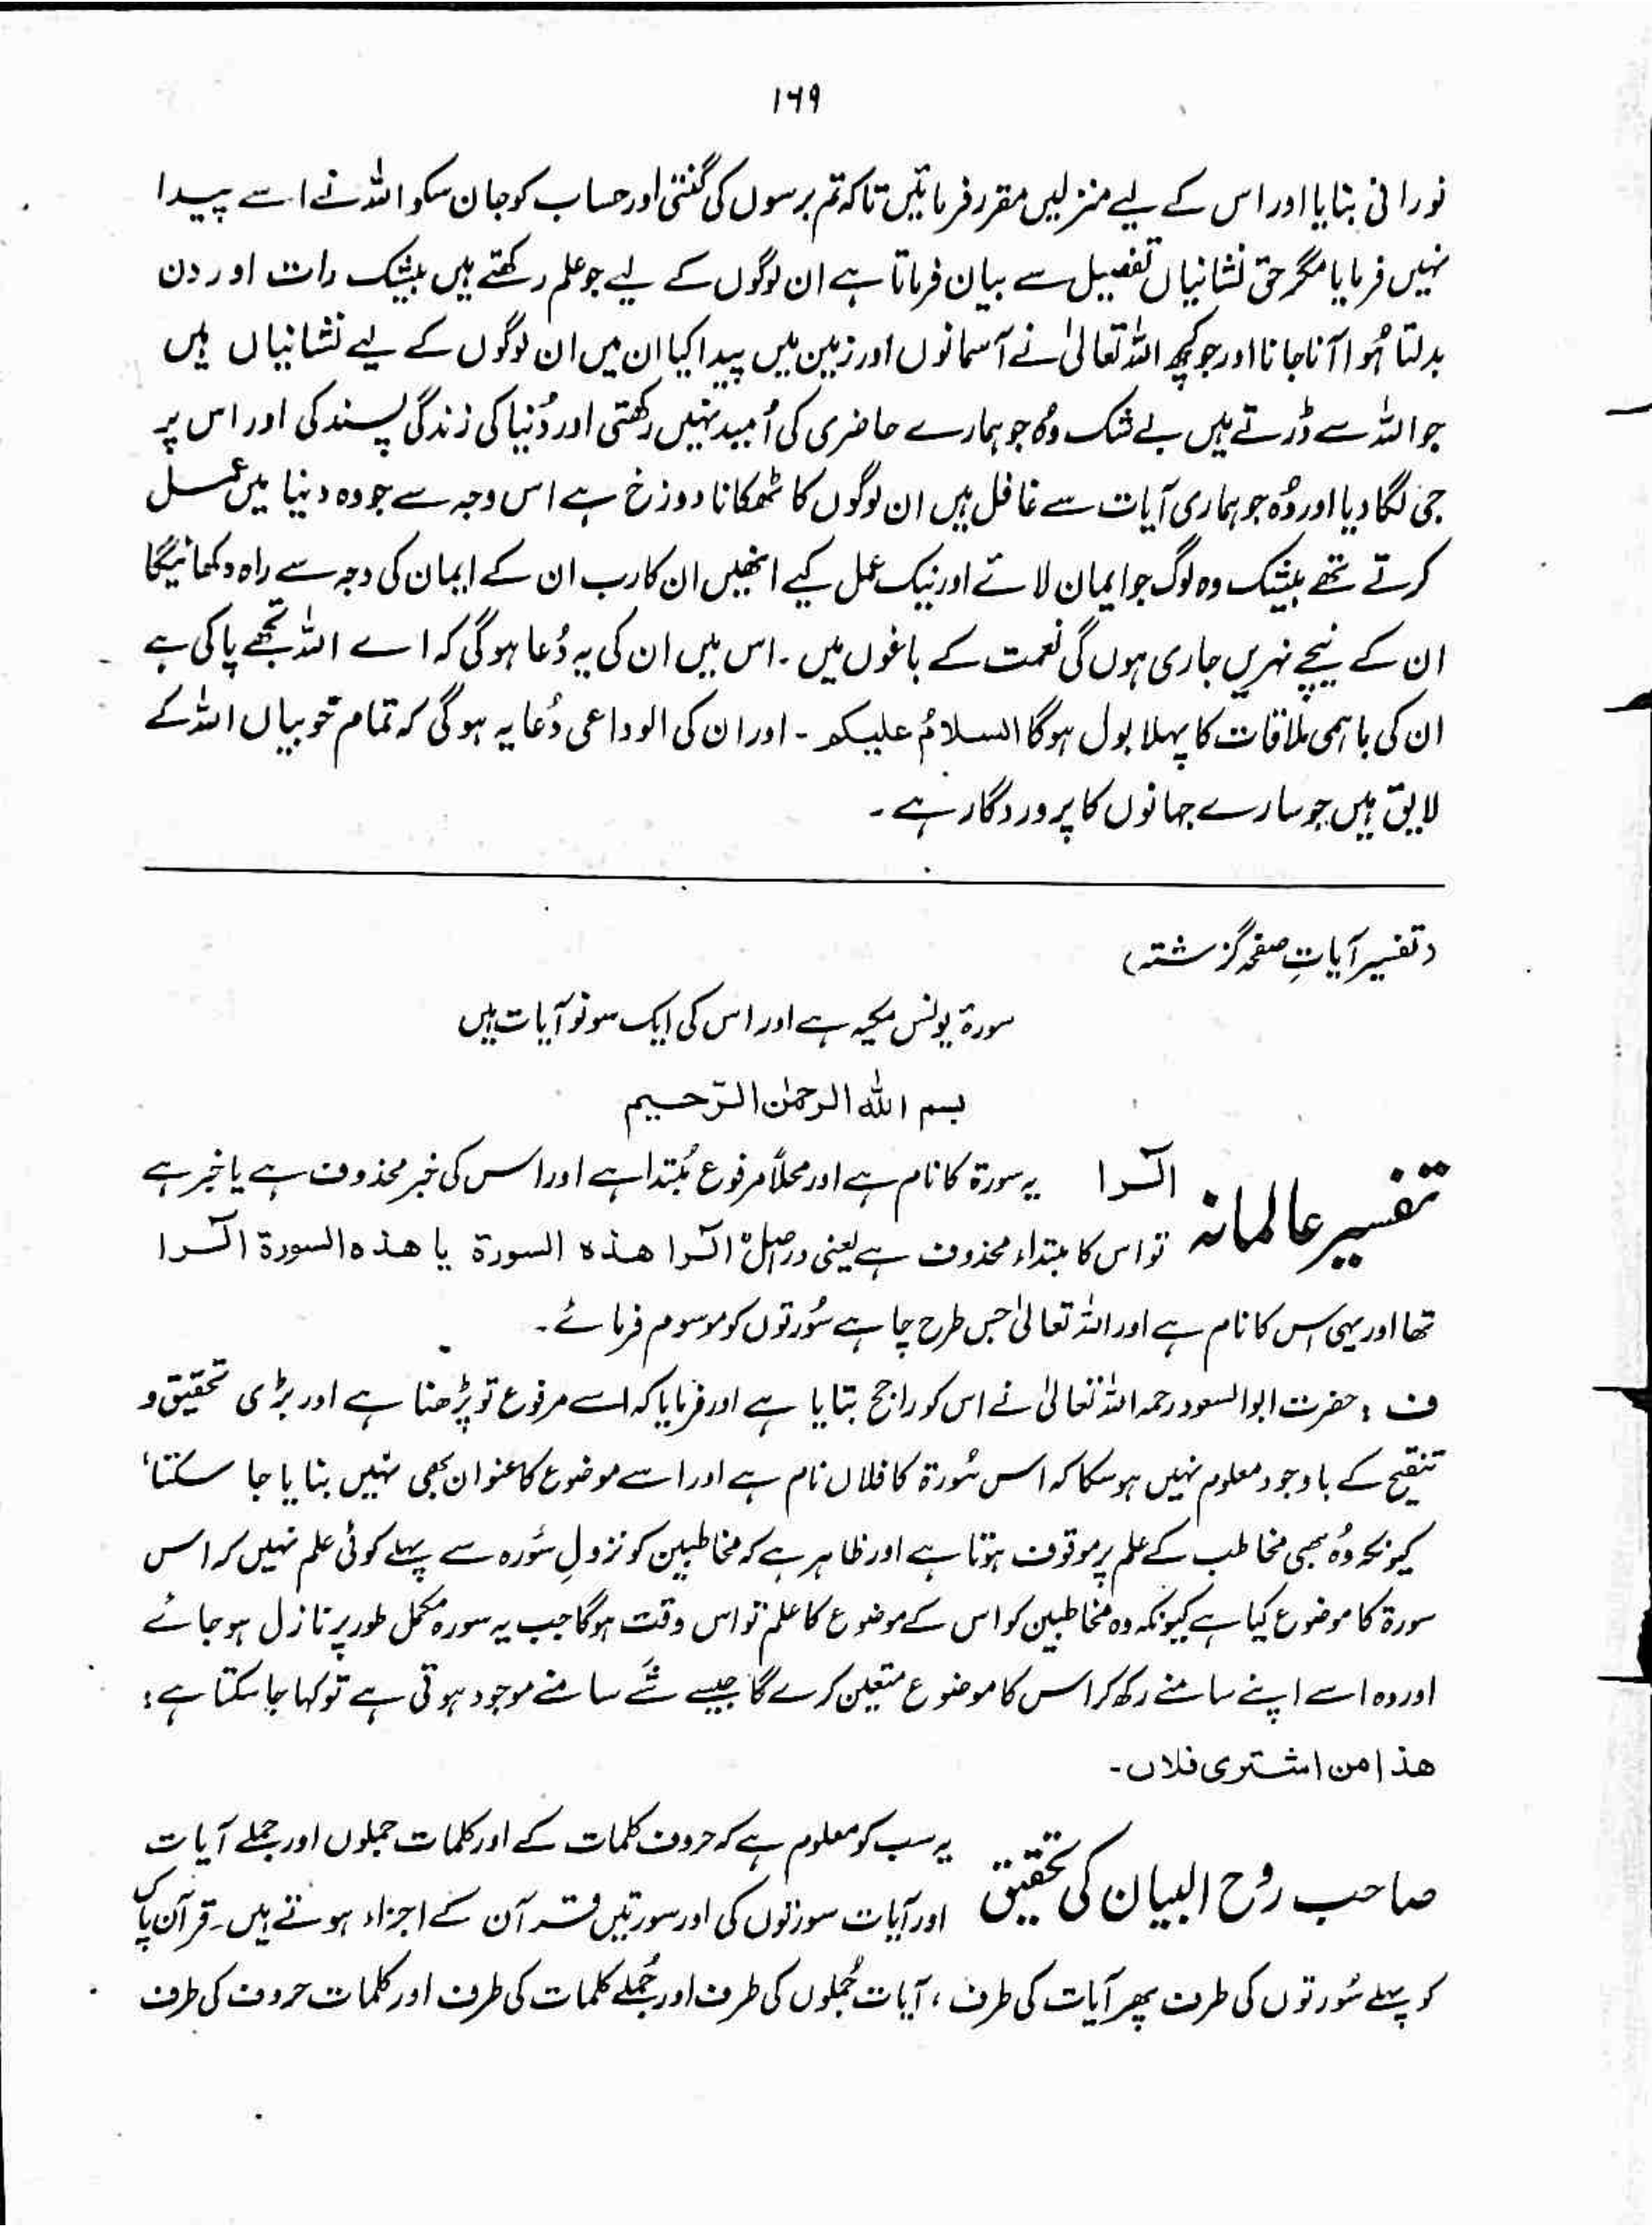 ۱۶۹
نورانی بنایا اور اس کے لیے منزلیں مقرر فرمائیں تاکہ تم برسوں کی گنتی اور حساب کو جان سکو اللہ نے اسے پیدا
نہیں فرمایا مگر حق نشانیاں تفصیل سے بیان فرماتا ہے ان لوگوں کے لیے جو علم رکھتے ہیں بیشک رات اور دن
بدلتا ہُوا آنا جانا اور جو کچھ اللہ تعالیٰ نے آسمانوں اور زمین میں پیدا کیا ان میں ان لوگوں کے لیے نشانیاں ہیں
جو اللہ سے ڈرتے ہیں بے شک وُہ جو ہمارے حاضری کی اُمید نہیں رکھتی اور دُنیا کی زندگی پسند کی اور اس پر
جی لگا دیا اور وُہ جو ہماری آیات سے غافل ہیں ان لوگوں کا ٹھکانا دوزخ ہے اس وجہ سے جو وہ دنیا میں عمل
کرتے تھے بیشک وہ لوگ جو ایمان لائے اور نیک عمل کیے انھیں ان کا رب ان کے ایمان کی وجہ سے راہ دکھائیگا
ان کے نیچے نہریں جاری ہوں گی نعمت کے باغوں میں ۔ اس میں ان کی یہ دُعا ہوگی کہ اے اللہ تجھے پاکی ہے
ان کی باہمی ملاقات کا پہلا بول ہوگا السلامُ علیکم ۔ اور ان کی الوداعی دُعا یہ ہوگی کہ تمام خوبیاں اللہ کے
لایق ہیں جو سارے جہانوں کا پروردگار ہے ۔
(تفسیر آیاتِ صفحہ گزشتہ)
سورۃ یونس مکیہ ہے اور اس کی ایک سو نو آیات ہیں
بسم اللہ الرحمٰن الرّحیم
تفسیر عالمانہ الٓرا یہ سورۃ کا نام ہے اور محلاً مرفوع مُبتدا ہے اور اس کی خبر محذوف ہے یا خبر ہے
تو اس کا مبتداء محذوف ہے یعنی دراصل الٓرا ھذہ السورۃ یا ھذہ السورۃ الٓرا
تھا اور یہی اس کا نام ہے اور اللہ تعالیٰ جس طرح چاہے سُورتوں کو موسوم فرمائے ۔
ف : حضرت ابوالسعود رحمہ اللہ تعالیٰ نے اس کو راجح بتایا ہے اور فرمایا کہ اسے مرفوع تو پڑھنا ہے اور بڑی تحقیق و
تنقیح کے باوجود معلوم نہیں ہو سکا کہ اس سُورۃ کا فلاں نام ہے اور اسے موضوع کا عنوان بھی نہیں بنایا جا سکتا،
کیونکہ وُہ بھی مخاطب کے علم پر موقوف ہوتا ہے اور ظاہر ہے کہ مخاطبین کو نزولِ سُورہ سے پہلے کوئی علم نہیں کہ اس
سورۃ کا موضوع کیا ہے کیونکہ وہ مخاطبین کو اس کے موضوع کا علم تو اس وقت ہوگا جب یہ سورہ مکمل طور پر نازل ہو جائے
اور وہ اسے اپنے سامنے رکھ کر اس کا موضوع متعین کرے گا جیسے شَے سامنے موجود ہوتی ہے تو کہا جا سکتا ہے :
ھذا من اشتری فلاں ۔
صاحب روُح البیان کی تحقیق یہ سب کو معلوم ہے کہ حروف کلمات کے اور کلمات جملوں اور جملے آیات
اور آیات سورتوں کی اور سورتیں قرآن کے اجزاء ہوتے ہیں ۔ قرآن پاک
کو پہلے سُورتوں کی طرف پھر آیات کی طرف ، آیات جُملوں کی طرف اور جُملے کلمات کی طرف اور کلمات حروف کی طرف